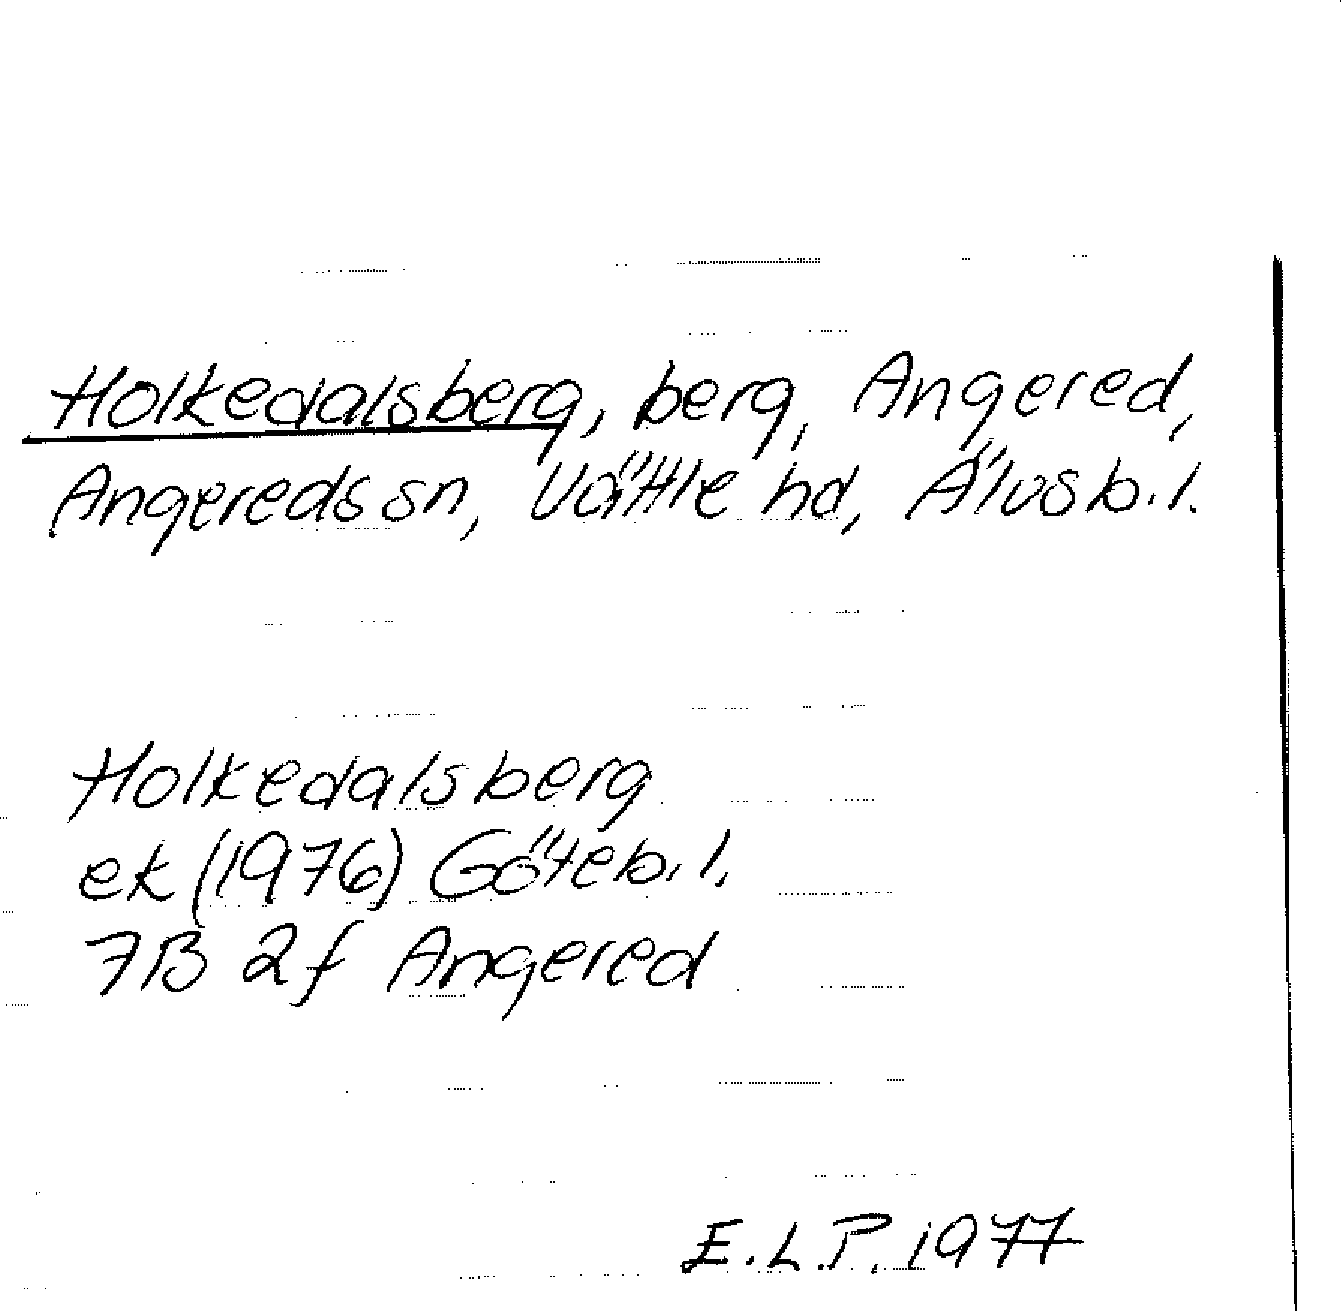 Holkedalsberg, berg, Angered,
Angereds sn, Vättle hd, Älvsb. l.
Holkedalsberg
ek (1976) Göteb. l.
7B 2f Angered
E.L.P. 1977